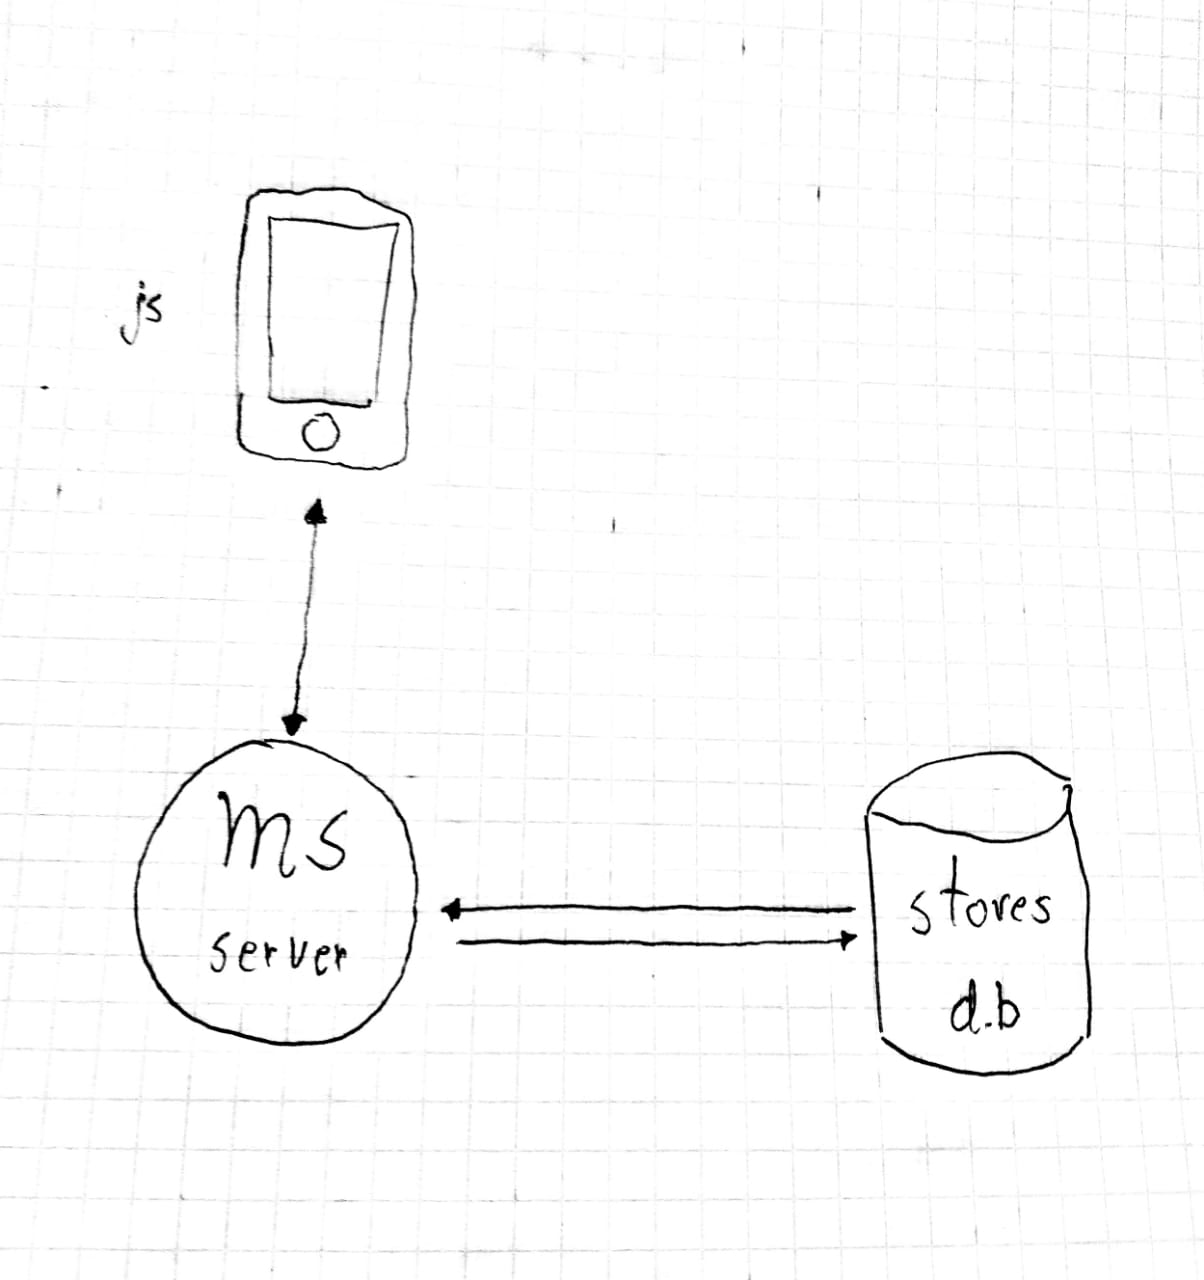 js
ms
server
stores
d.b